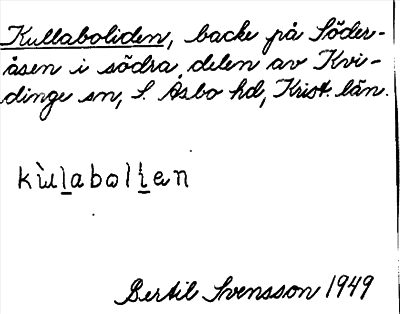 Kullaboliden, backe på Söder-
åsen i södra delen av Kvi-
dinge sn, S. Åsbo hd, Krist. län.
kùl̲aboli̲en
Bertil Svensson 1949